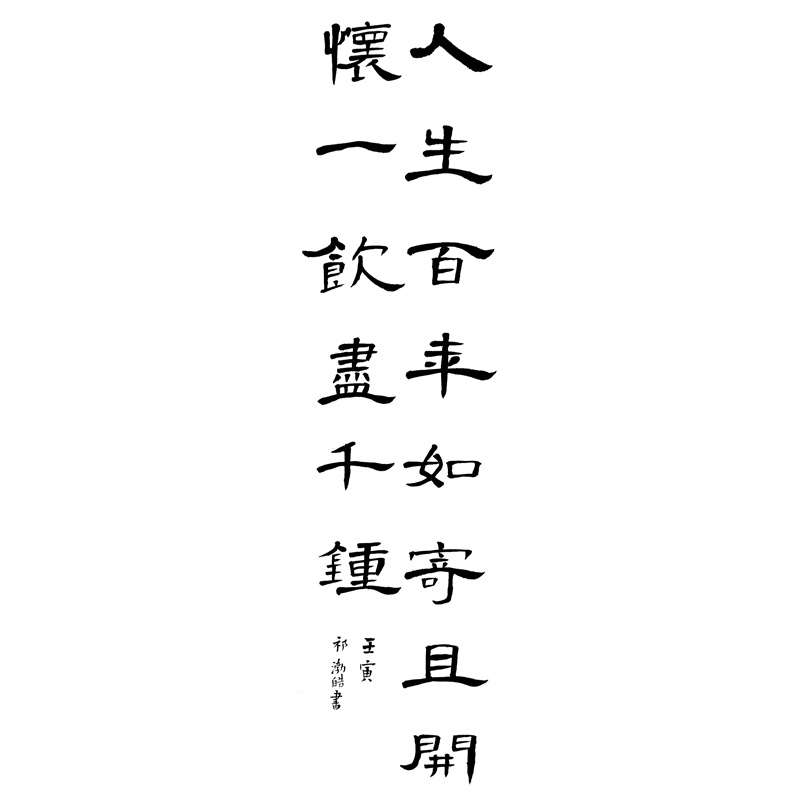 人生百年如寄且開
懷一飲盡千鍾
壬寅
祁渤皓書